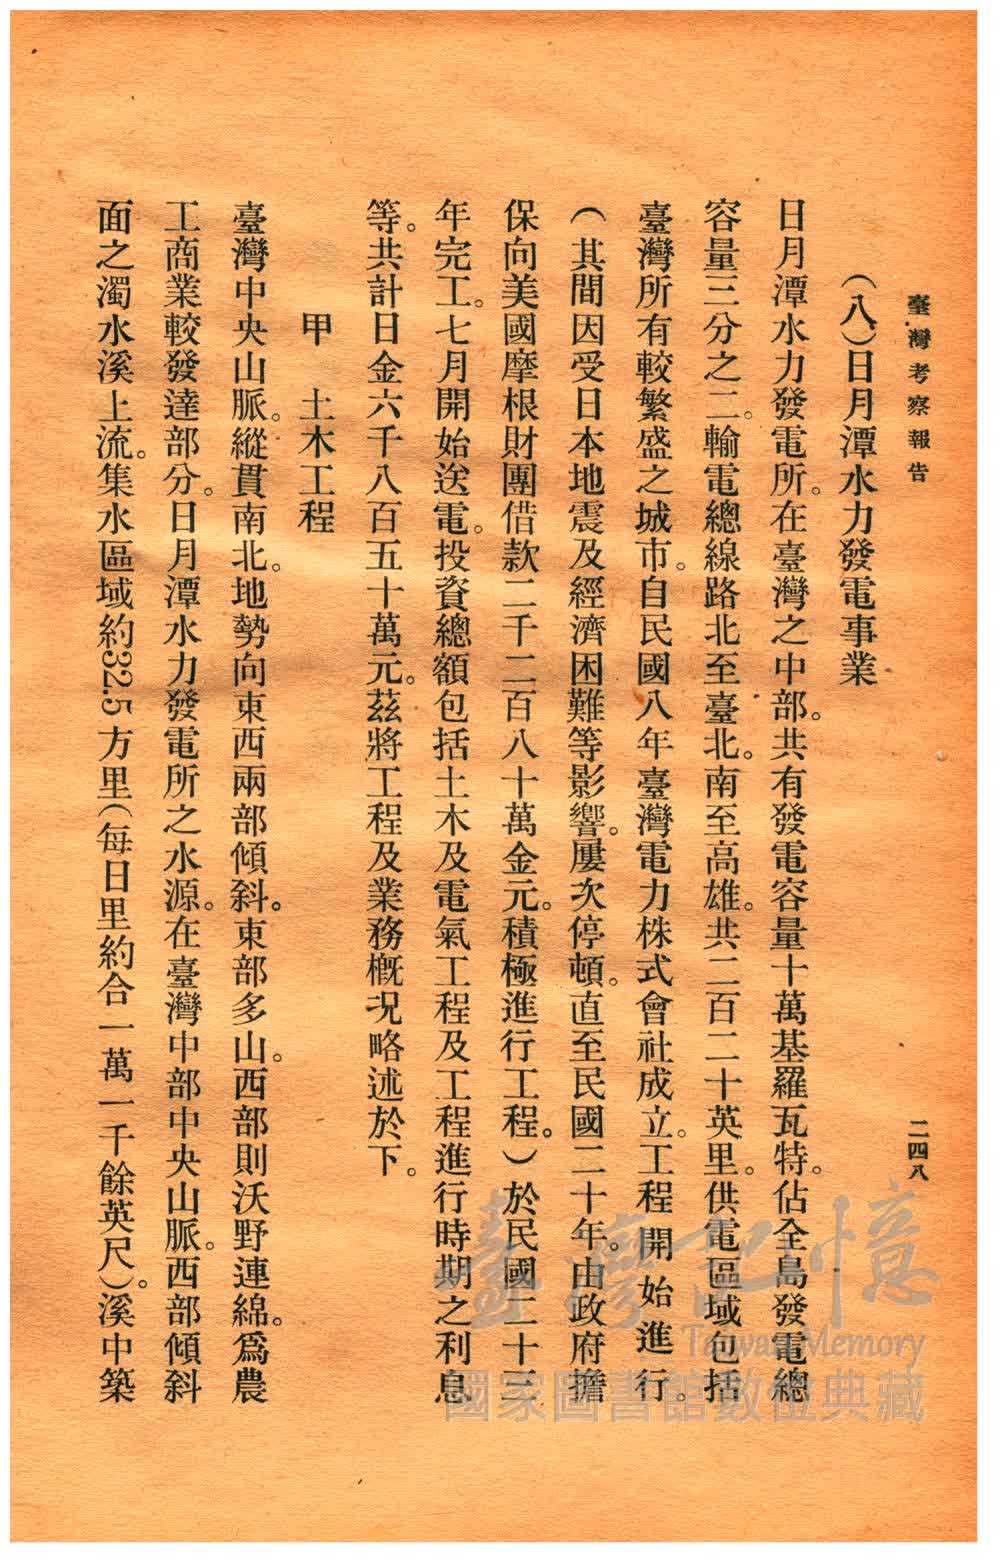 臺灣考察報告
二四八
(八)日月潭水力發電事業
日月潭水力發電所。在臺灣之中部。共有發電容量十萬基羅瓦特。佔全島發電總
容量三分之二。輸電總線路北至臺北。南至高雄。共二百二十英里。供電區域包括
臺灣所有較繁盛之城市。自民國八年臺灣電力株式會社成立。工程開始進行。
(其間因受日本地震及經濟困難等影響。屢次停頓。直至民國二十年。由政府擔
保向美國摩根財團借款二千二百八十萬金元。積極進行工程。)於民國二十三
年完工。七月開始送電。投資總額包括土木及電氣工程及工程進行時期之利息
等。共計日金六千八百五十萬元。茲將工程及業務概况略述於下。
甲 土木工程
臺灣中央山脈。縱貫南北。地勢向東西兩部傾斜。東部多山。西部則沃野連綿。爲農
工商業較發達部分。日月潭水力發電所之水源。在臺灣中部中央山脈。西部傾斜
面之濁水溪上流。集水區域約32.5方里(每日里約合一萬一千餘英尺)。溪中築
臺灣記憶
Taiwan Memory
國家圖書館數位典藏